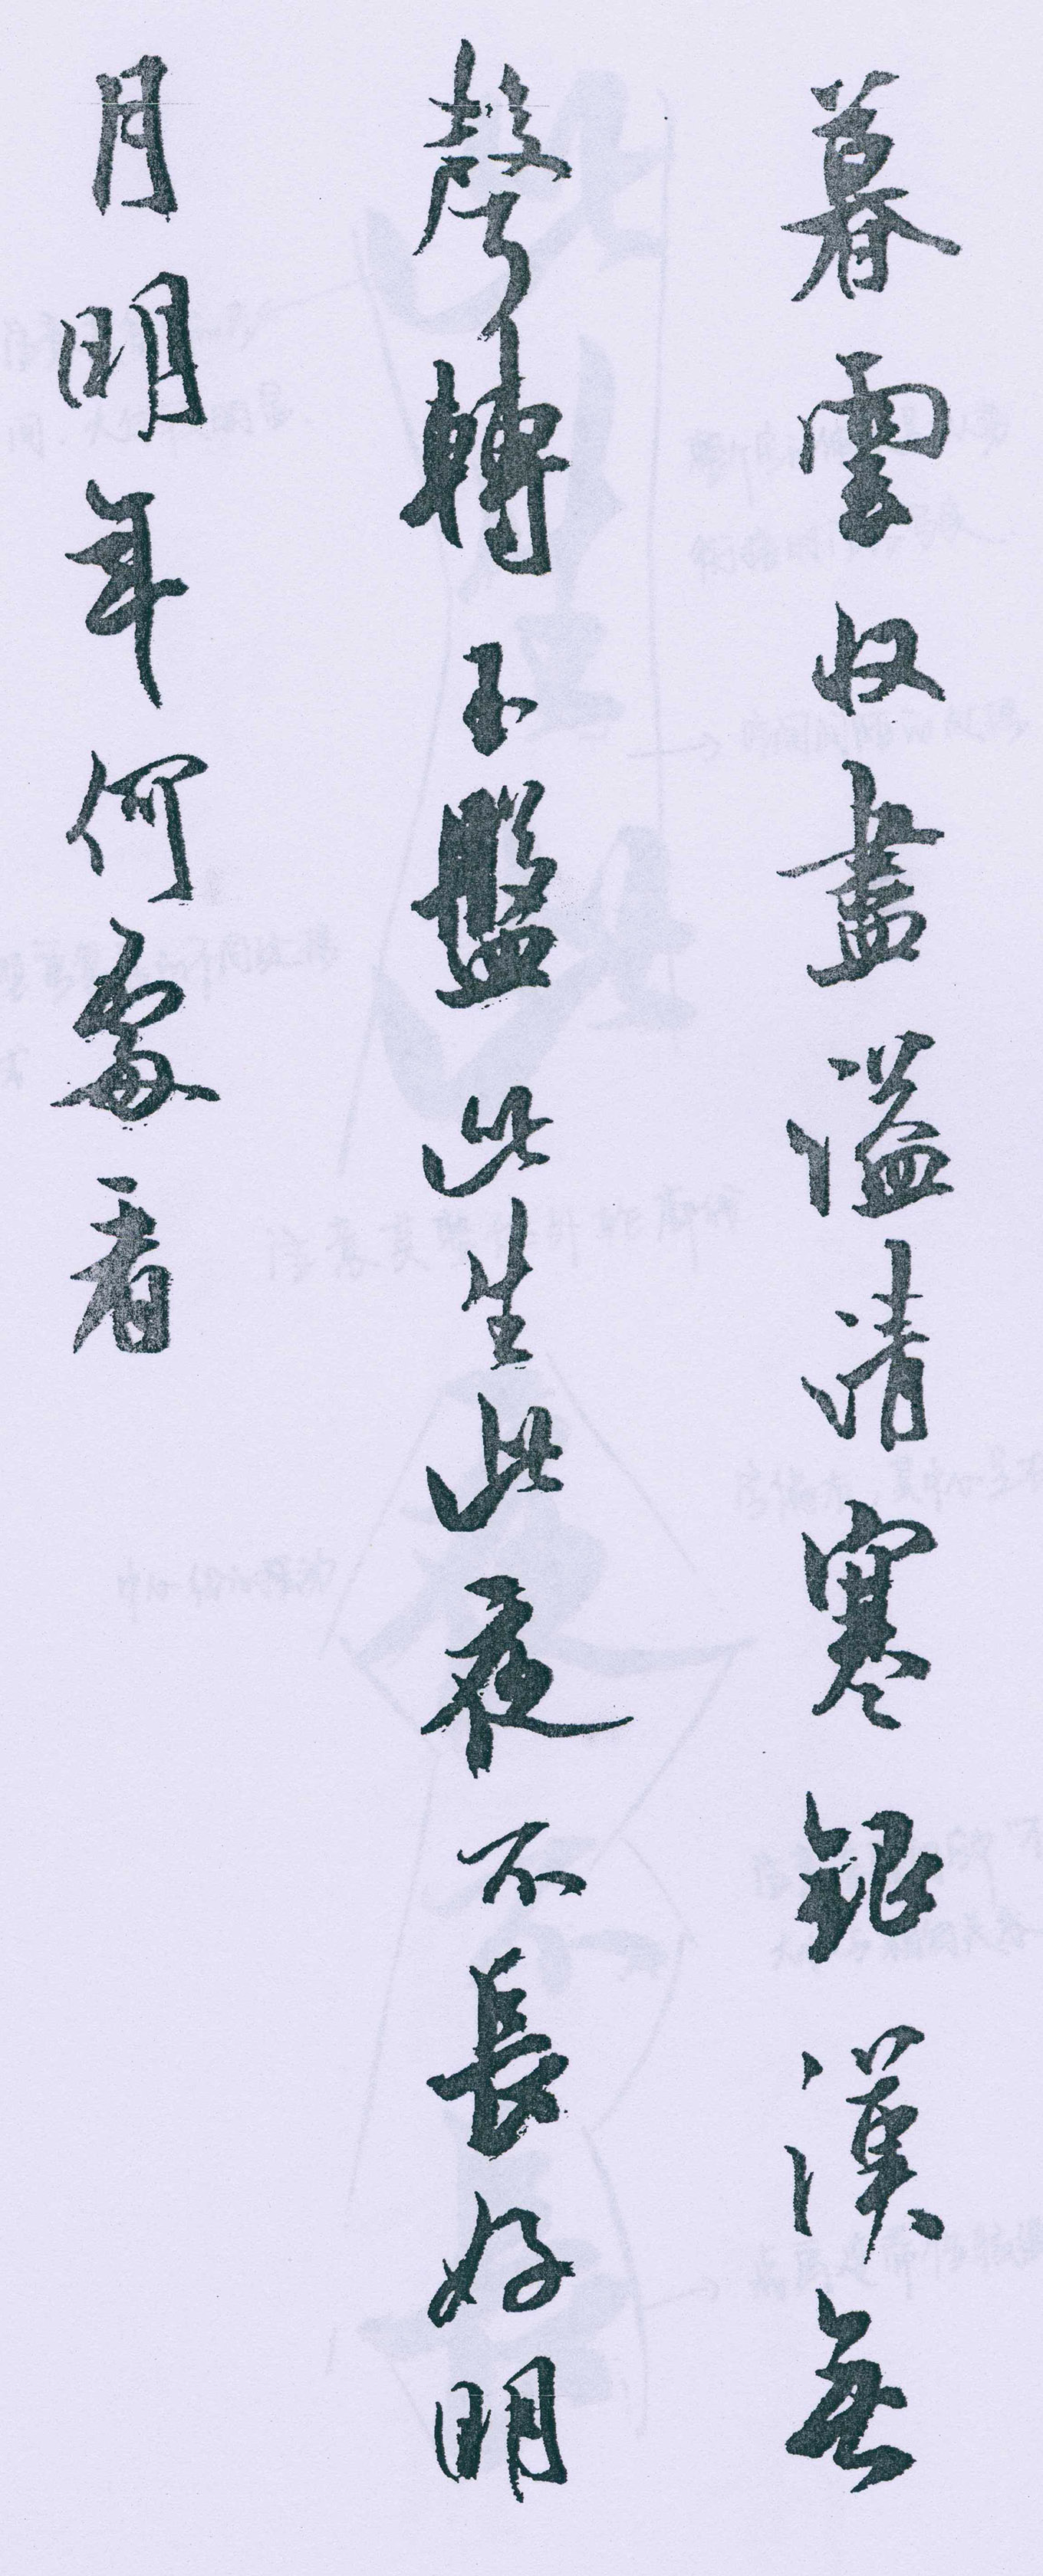 暮雲收盡溢清寒銀漢無
聲轉玉盤此生此夜不長好明
月明年何處看